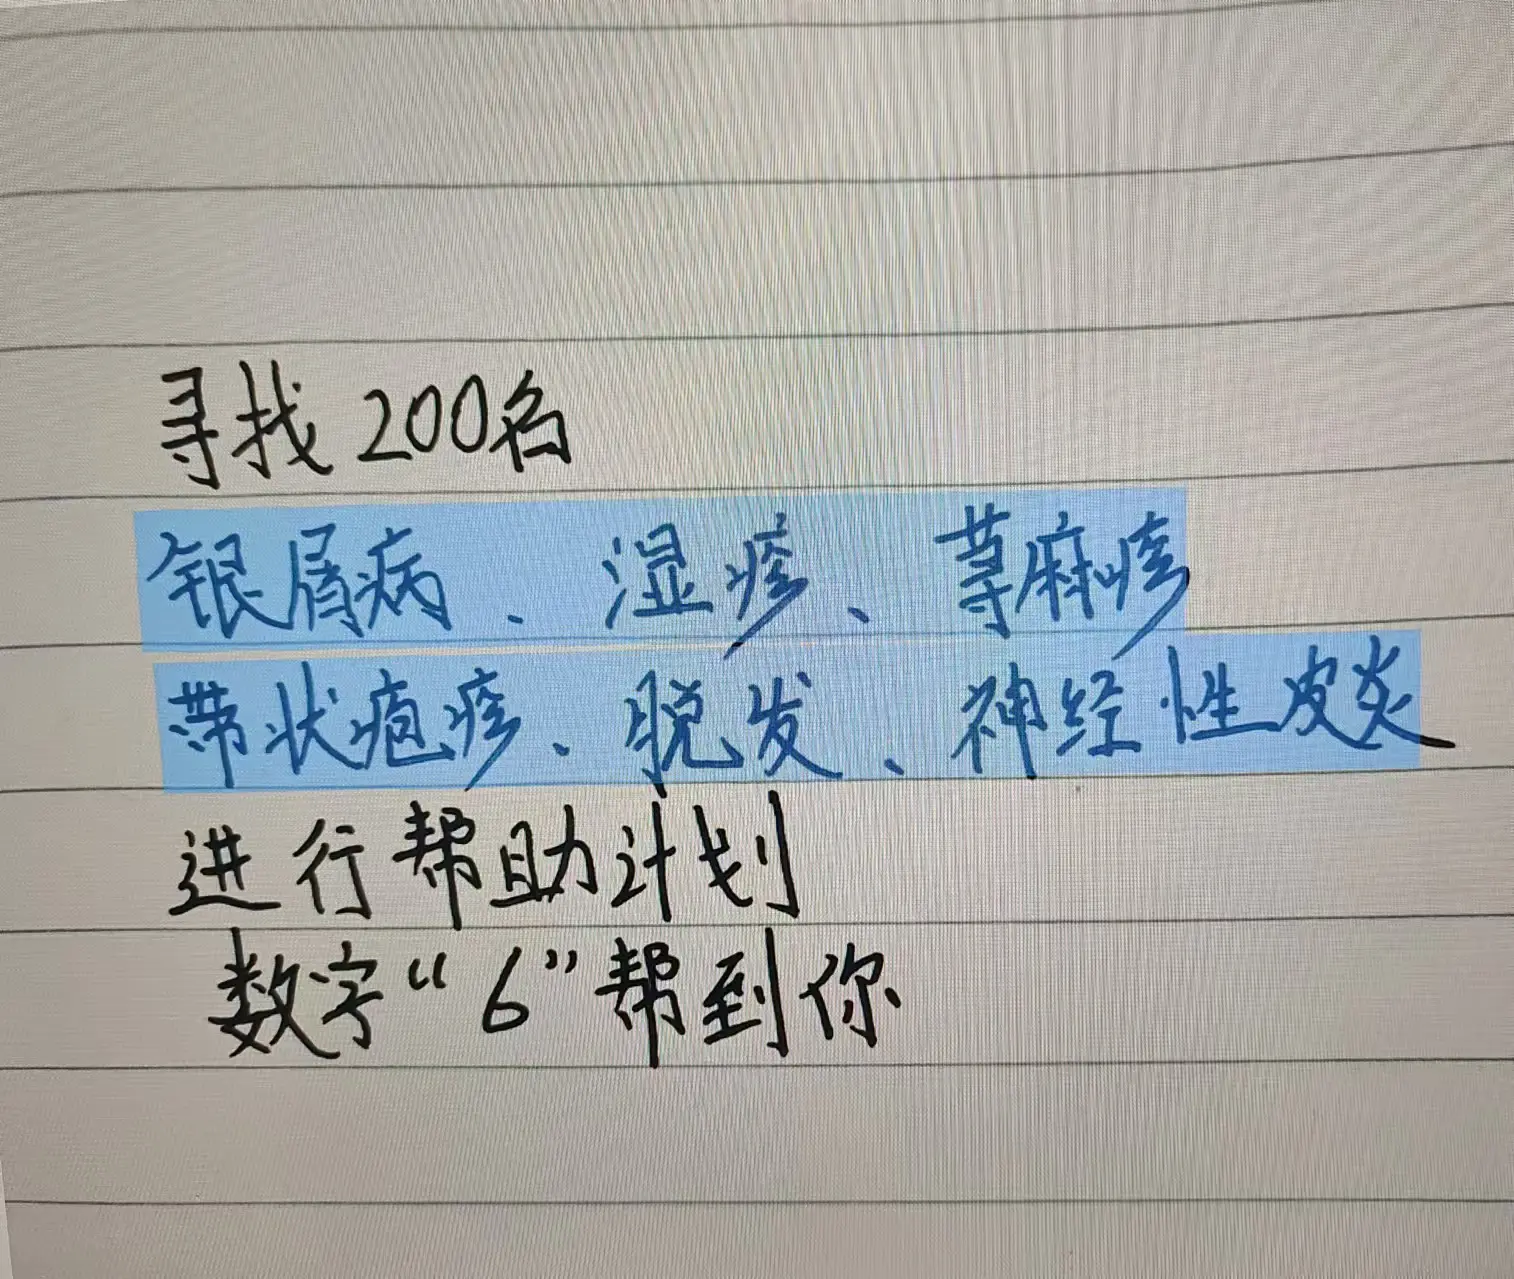 寻找200名
银屑病、湿疹、荨麻疹
带状疱疹、脱发、神经性皮炎
进行帮助计划
数字“6”帮到你